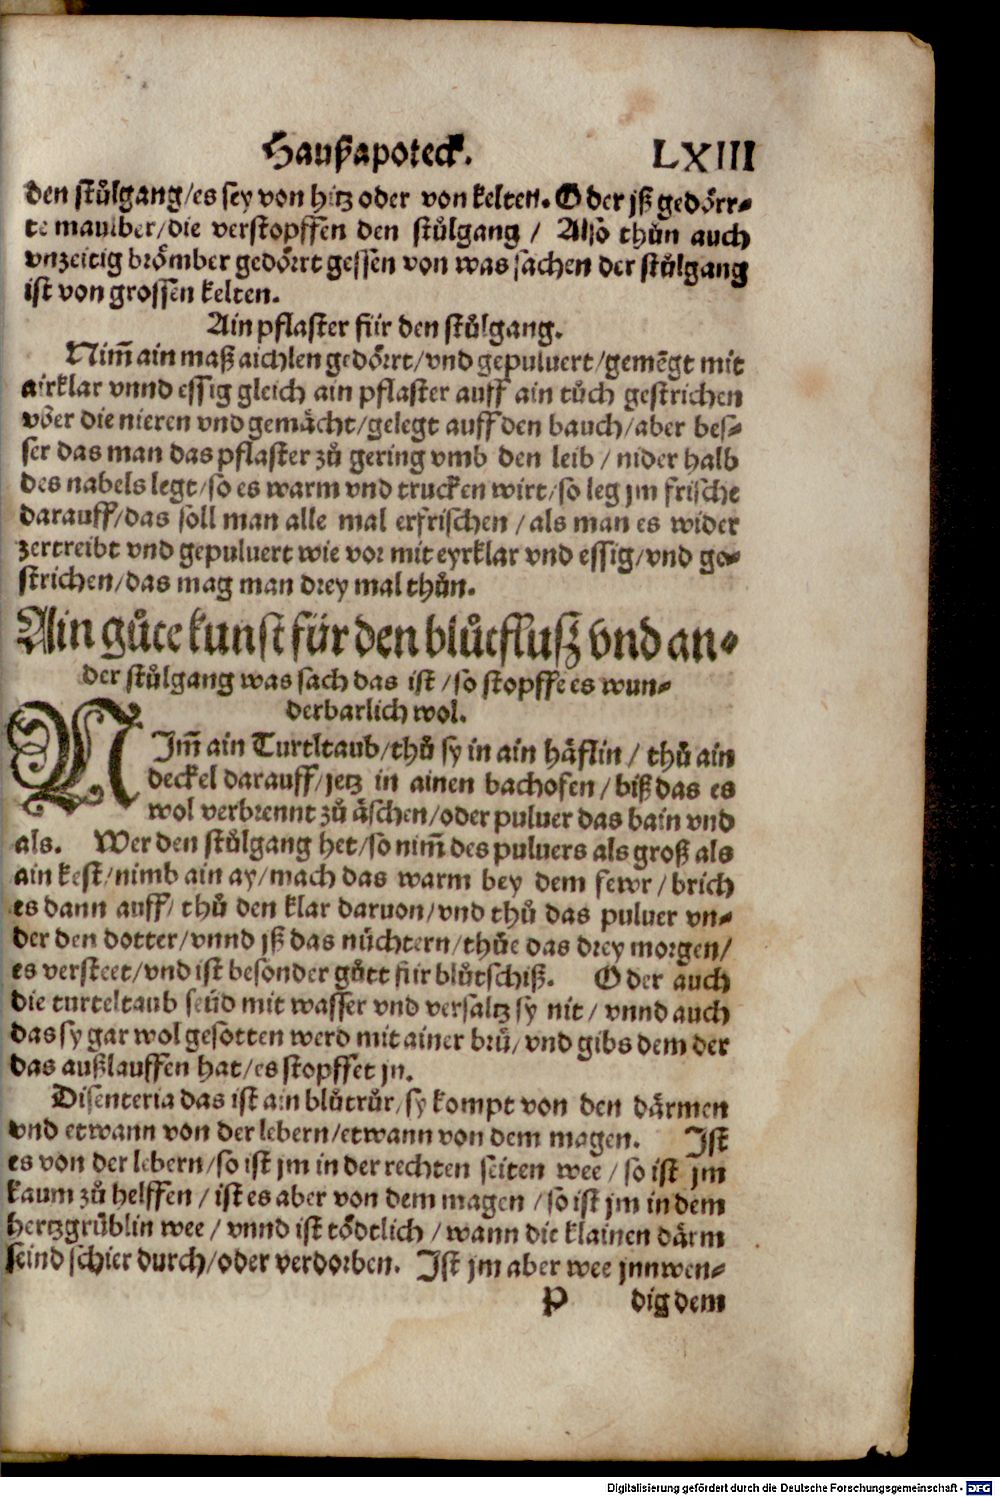 Haußapoteck. LXIII
den stůlgang/es sey von hitz oder von kelten. Oder jß gedörr-
te maulber/die verstopffen den stůlgang / Also thůn auch
vnzeitig brömber gedörrt gessen von was sachen der stůlgang
ist von grossen kelten.
Ain pflaster für den stůlgang.
Nim̃ ain maß aichlen gedörrt/vnd gepuluert/gemēgt mit
airklar vnnd essig gleich ain pflaster auff ain tůch gestrichen
vber die nieren vnd gemächt/gelegt auff den bauch/aber bes-
ser das man das pflaster zů gering vmb den leib / nider halb
des nabels legt/so es warm vnd trucken wirt/so leg jm frische
darauff/das soll man alle mal erfrischen / als man es wider
zertreibt vnd gepuluert wie vor mit eyrklar vnd essig/vnd ge-
strichen/das mag man drey mal thůn.
Ain gůte kunst für den blůtflusz vnd an-
der stůlgang was sach das ist / so stopffe es wun-
derbarlich wol.
NIm̃ ain Turtltaub/thů sy in ain häflin / thů ain
deckel darauff/setz in ainen bachofen / biß das es
wol verbrennt zů äschen/oder puluer das bain vnd
als. Wer den stůlgang het/so nim̃ des puluers als groß als
ain kest/nimb ain ay/mach das warm bey dem fewr / brich
es dann auff/ thů den klar daruon/vnd thů das puluer vn-
der den dotter/vnnd jß das nůchtern/thůe das drey morgen/
es versteet/vnd ist besonder gůtt für blůtschiß. Oder auch
die turteltaub seüd mit wasser vnd versaltz sy nit / vnnd auch
das sy gar wol gesotten werd mit ainer brů/vnd gibs dem der
das außlauffen hat/es stopffet jn.
Disenteria das ist ain blůtrůr/sy kompt von den därmen
vnd etwann von der lebern/etwann von dem magen. Ist
es von der lebern/so ist jm in der rechten seiten wee / so ist jm
kaum zů helffen / ist es aber von dem magen / so ist jm in dem
hertzgrüblin wee / vnnd ist tödtlich / wann die klainen därm
seind schier durch/oder verdorben. Ist jm aber wee jnnwen-
P dig dem
Digitalisierung gefördert durch die Deutsche Forschungsgemeinschaft - DFG